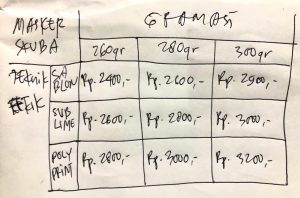 MASKER SKUBA GRAMASI
260gr 280gr 300gr
Teknik SABLON Rp. 2400,- Rp. 2600,- Rp. 2900,-
SUBLIME Rp. 2600,- Rp. 2800,- Rp. 3000,-
POLYPRINT Rp. 2800,- Rp. 3000,- Rp. 3200,-